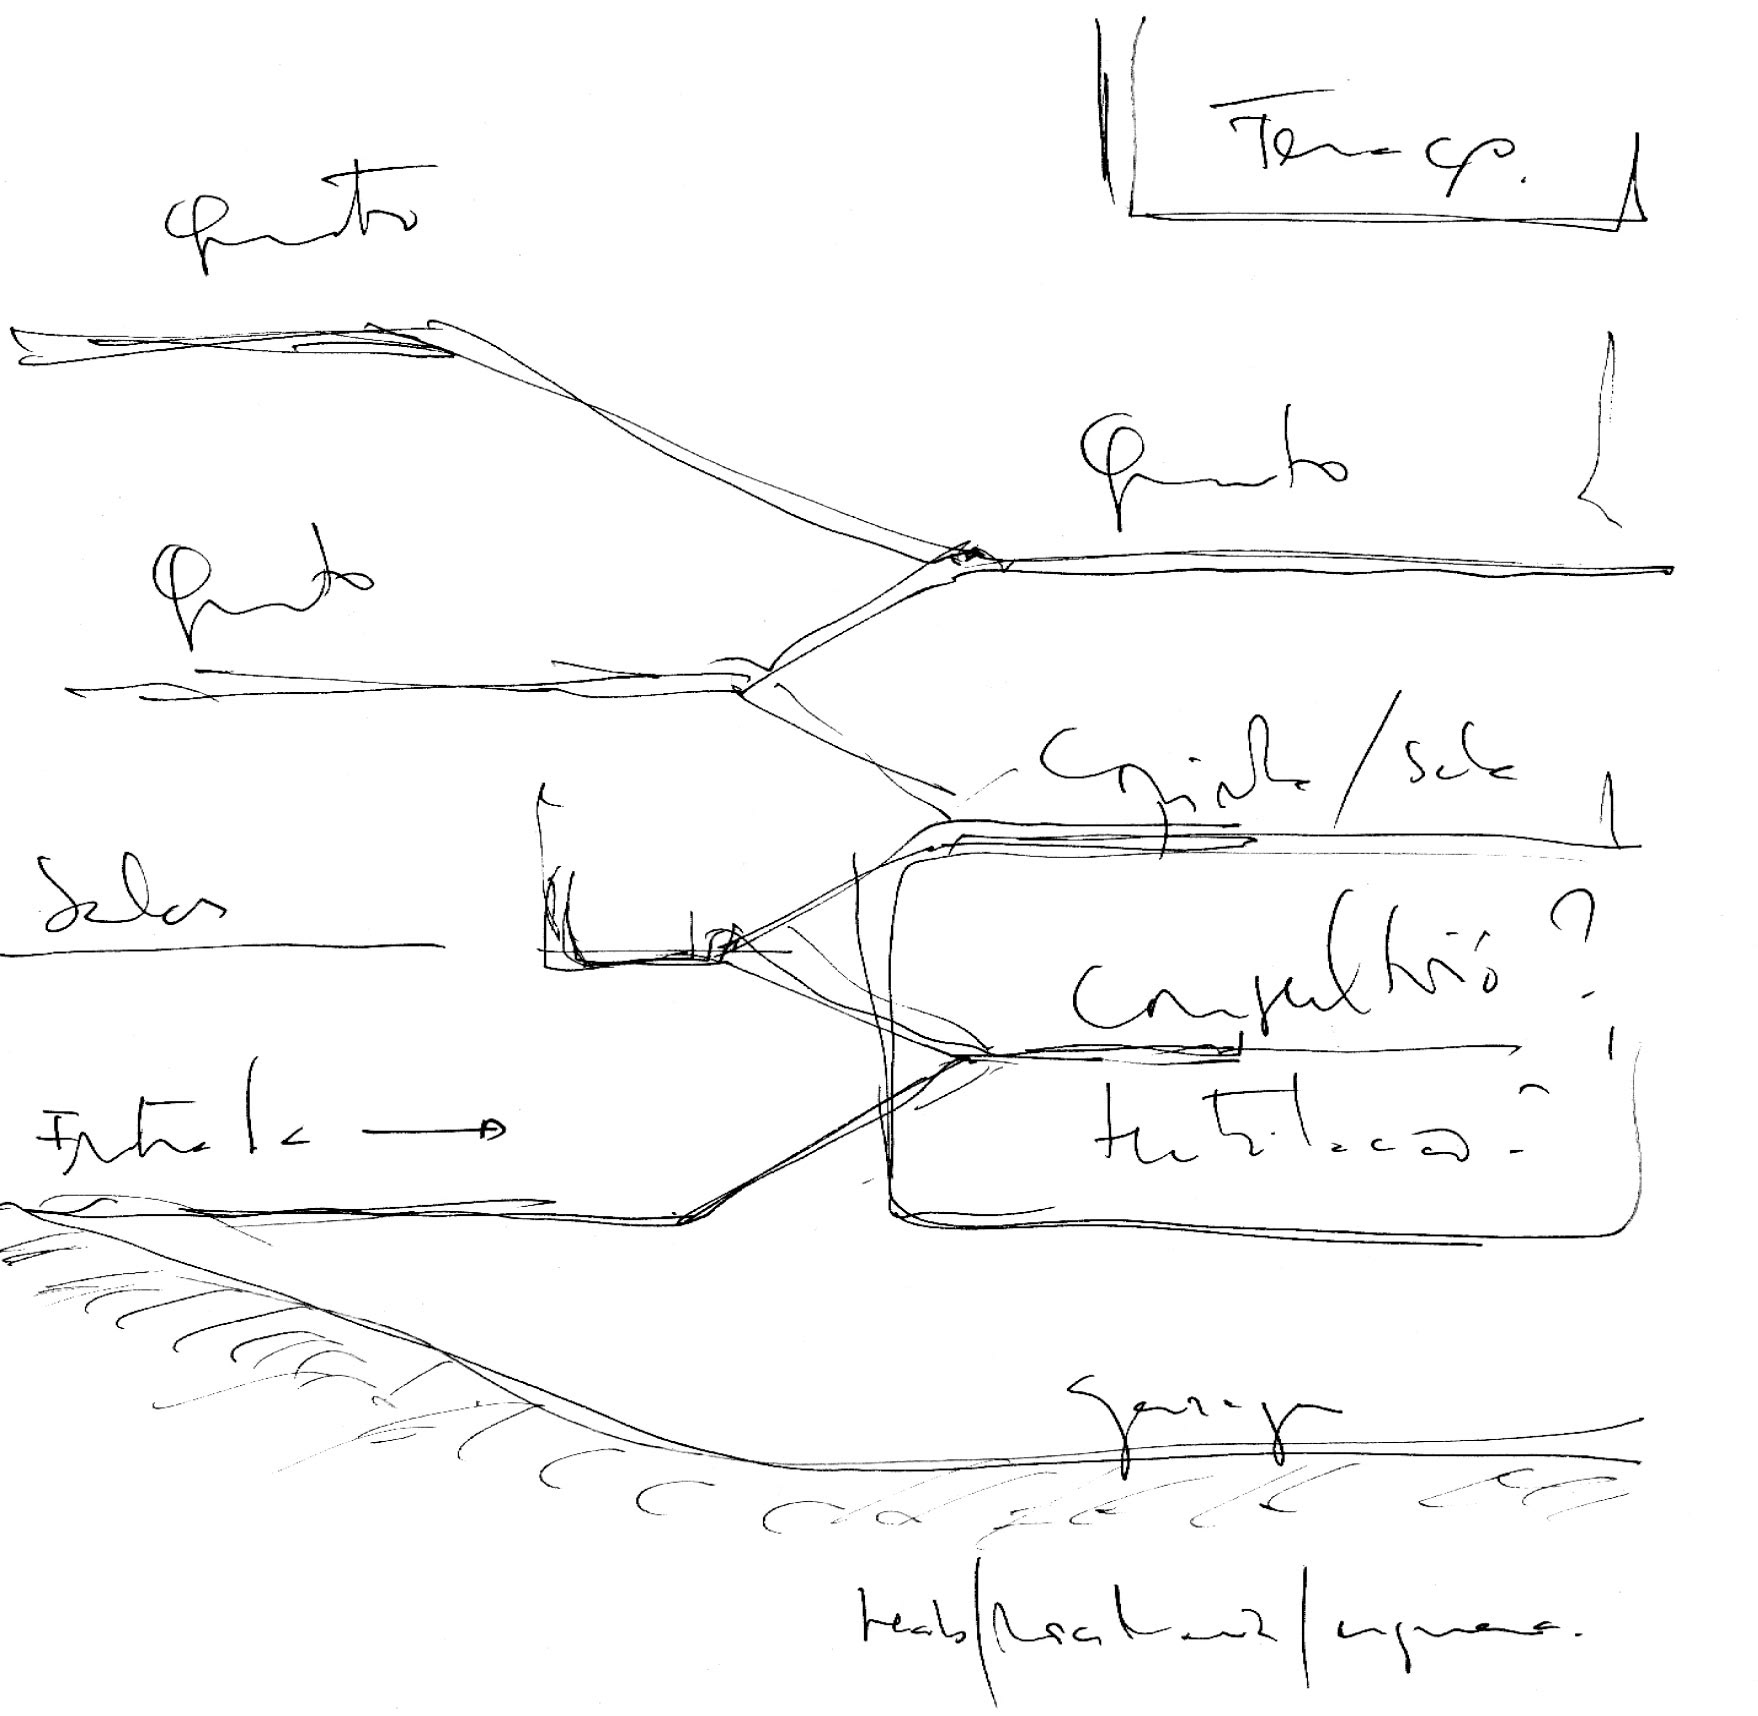 Terraço.
Quarto
Quarto
Quarto
Cozinha / Sala
Salas
Consultório ?
Entrada
Ventilação ?
garagem